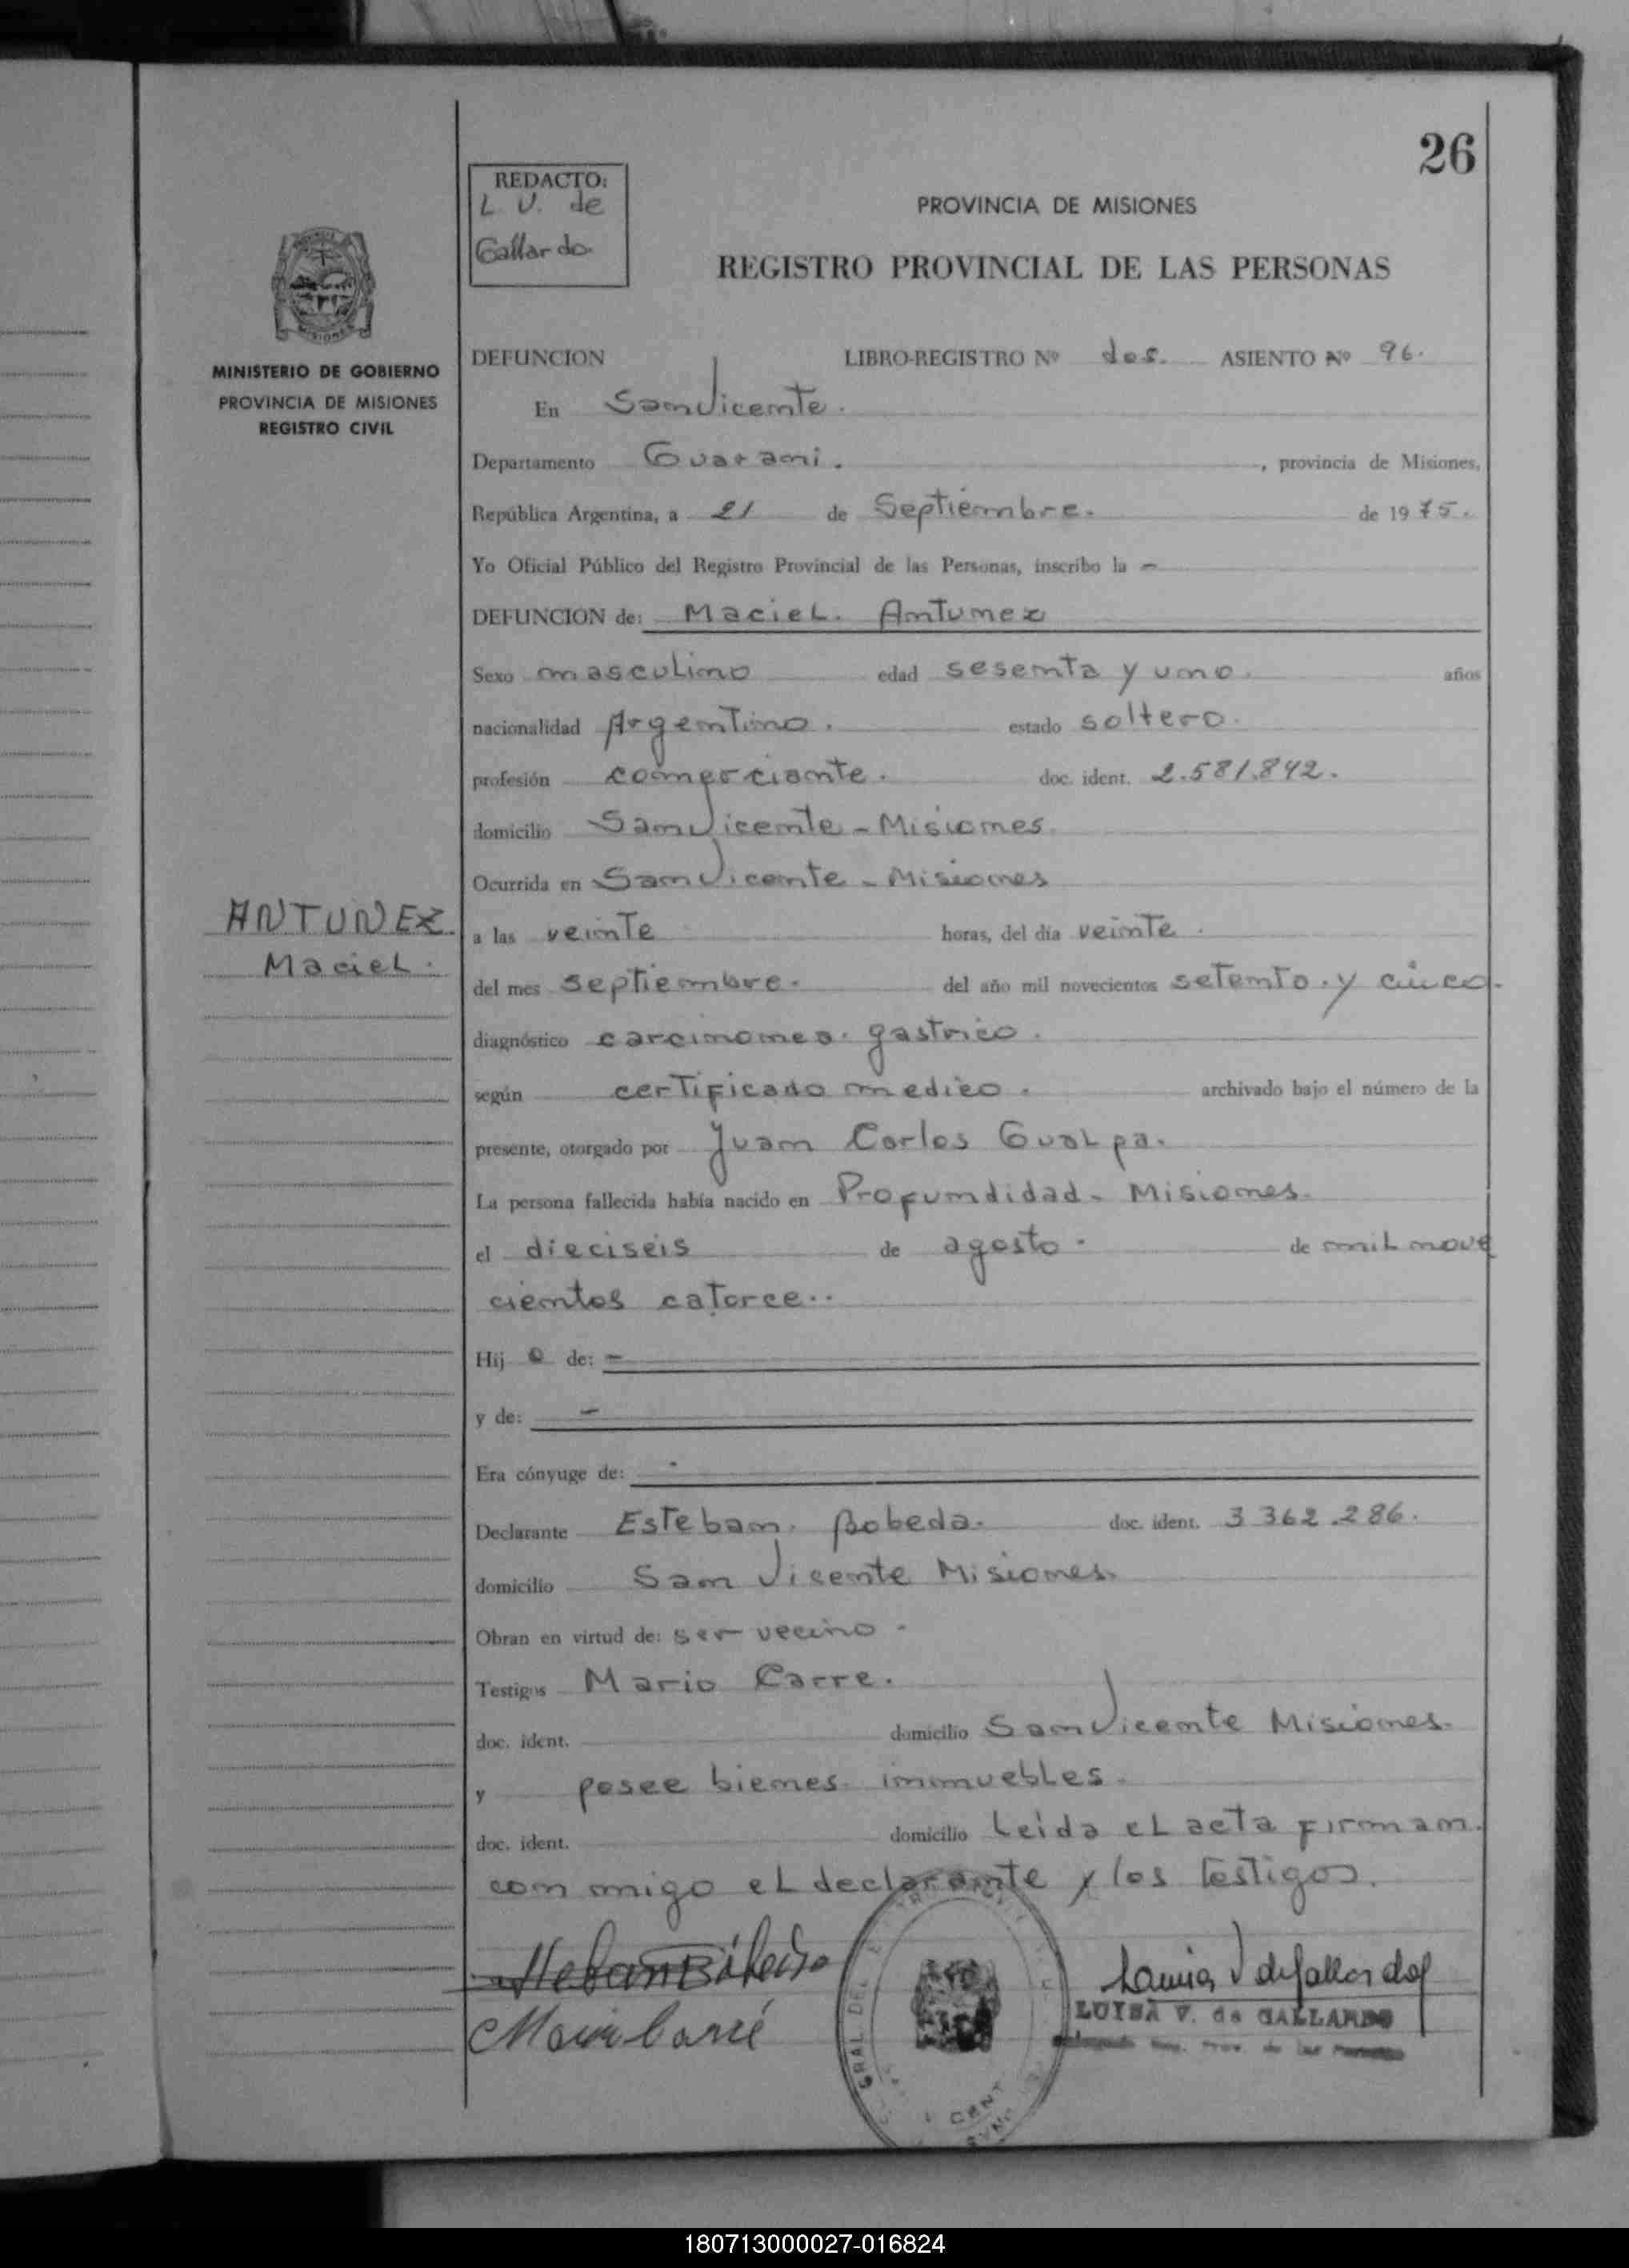 26
REDACTO:
L. V. de
Gallardo
PROVINCIA DE MISIONES
REGISTRO PROVINCIAL DE LAS PERSONAS
MINISTERIO DE GOBIERNO
PROVINCIA DE MISIONES
REGISTRO CIVIL
DEFUNCION LIBRO-REGISTRO Nº dos. ASIENTO Nº 96.
En San Vicente.
Departamento Guarani. , provincia de Misiones,
República Argentina, a 21 de Septiembre. de 1975.
Yo Oficial Público del Registro Provincial de las Personas, inscribo la -
DEFUNCION de: Maciel. Antunez
Sexo masculino edad sesenta y uno. años
nacionalidad Argentino. estado soltero.
profesión comerciante. doc. ident. 2.581.842.
domicilio San Vicente - Misiones
Ocurrida en San Vicente - Misiones
ANTUNEZ
Maciel.
a las veinte horas, del día veinte.
del mes septiembre. del año mil novecientos setenta. y cinco.
diagnóstico carcinomea. gastrico.
según certificado medico. archivado bajo el número de la
presente, otorgado por Juan Carlos Gualpa.
La persona fallecida había nacido en Profundidad - Misiones.
el dieciseis de agosto. de mil nove
cientos catorce..
Hij o de: -
y de: -
Era cónyuge de: -
Declarante Esteban. Bobeda. doc. ident. 3 362.286.
domicilio San Vicente Misiones.
Obran en virtud de: ser vecino.
Testigos Mario Carre.
doc. ident. domicilio San Vicente Misiones.
y posee bienes inmuebles.
doc. ident. domicilio Leida el acta firman.
con migo el declarante y los testigos.
LUISA V. de GALLARDO
GRAL DEL
180713000027-016824